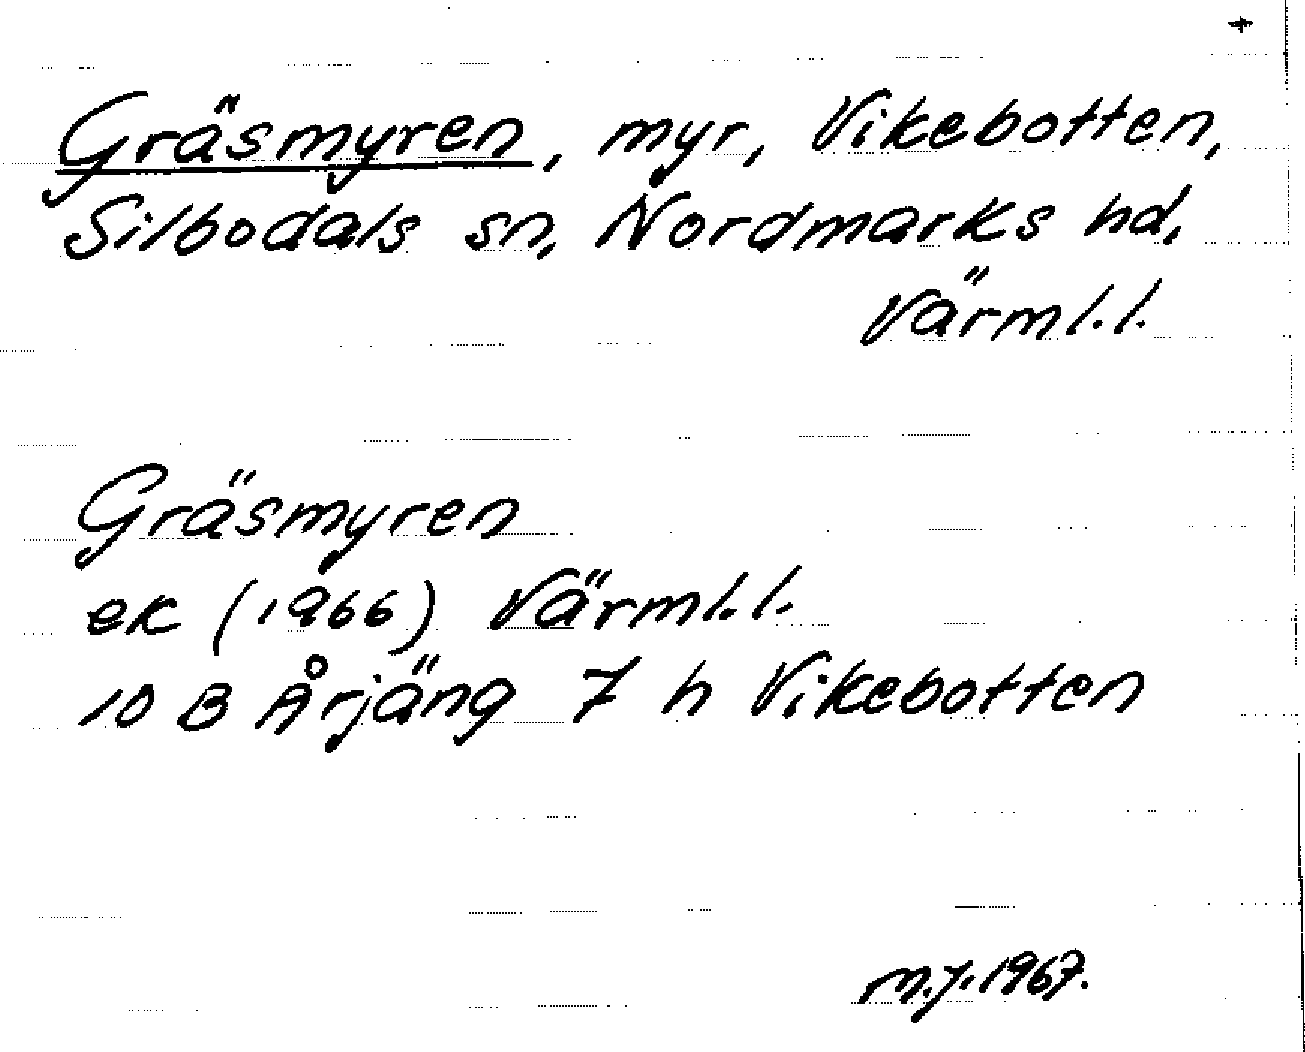 +
Gräsmyren, myr, Vikebotten,
Silbodals sn, Nordmarks hd,
Värml.l.
Gräsmyren
ek (1966) Värml.l.
10 B Årjäng 7 h Vikebotten
M.J. 1967.